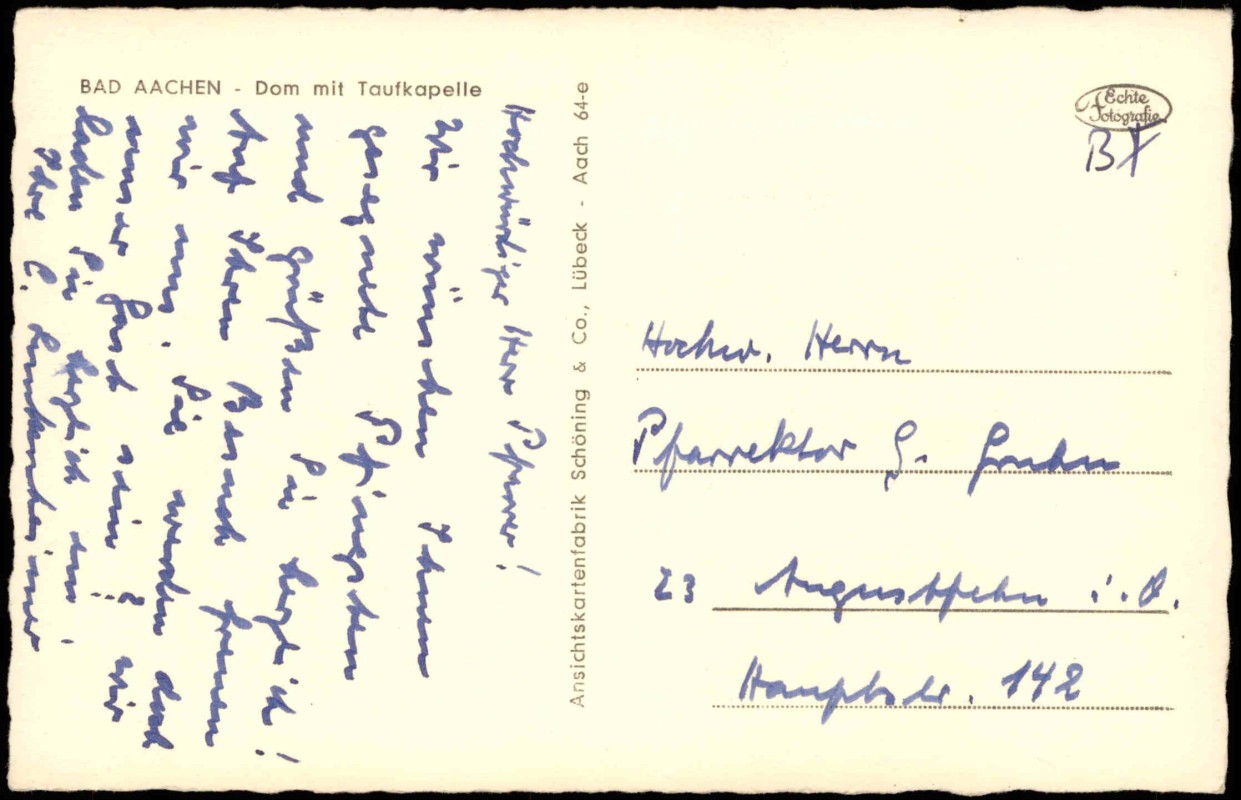 BAD AACHEN - Dom mit Taufkapelle
Hochwürdiger Herr Pfarrer!
Wir wünschen Ihnen
gesegnete Pfingsten
und grüßen Sie herzlich!
Auf Ihren Besuch freuen
wir uns. Sie werden doch
unser Gast sein? Wir
laden Sie herzlich ein.
Ihre C.
Ansichtskartenfabrik Schöning & Co., Lübeck - Aach 64-e
Echte
Fotografie
B
Hochw. Herrn
Pfarrektor G.
23 Augustfehn i. O.
Hauptstr. 142